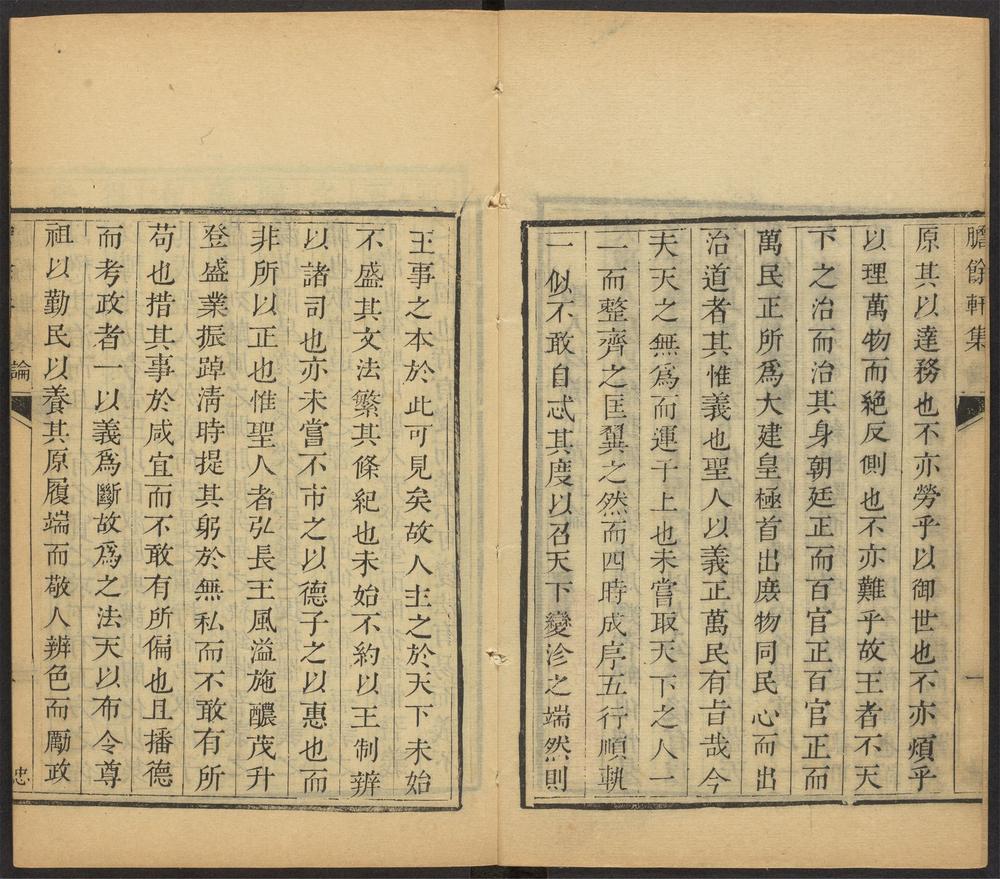 膽餘軒集 一
原其以達務也不亦勞乎以御世也不亦煩乎
以理萬物而絕反側也不亦難乎故王者不天
下之治而治其身朝廷正而百官正百官正而
萬民正所爲大建皇極首出庻物同民心而出
治道者其惟義也聖人以義正萬民有㫖哉今
夫天之無爲而運于上也未嘗取天下之人一
一而整齊之匡翼之然而四時成序五行順軌
一似不敢自忒其度以召天下變沴之端然則
王事之本於此可見矣故人主之於天下未始
不盛其文法繁其條紀也未始不約以王制辨
以諸司也亦未嘗不市之以德子之以惠也而
非所以正也惟聖人者弘長王風溢施醲茂升
登盛業振踔淸時提其躬於無私而不敢有所
苟也措其事於咸宜而不敢有所偏也且播德
而考政者一以義爲斷故爲之法天以布令尊
祖以勤民以養其原履端而敬人辨色而勵政
論 忠